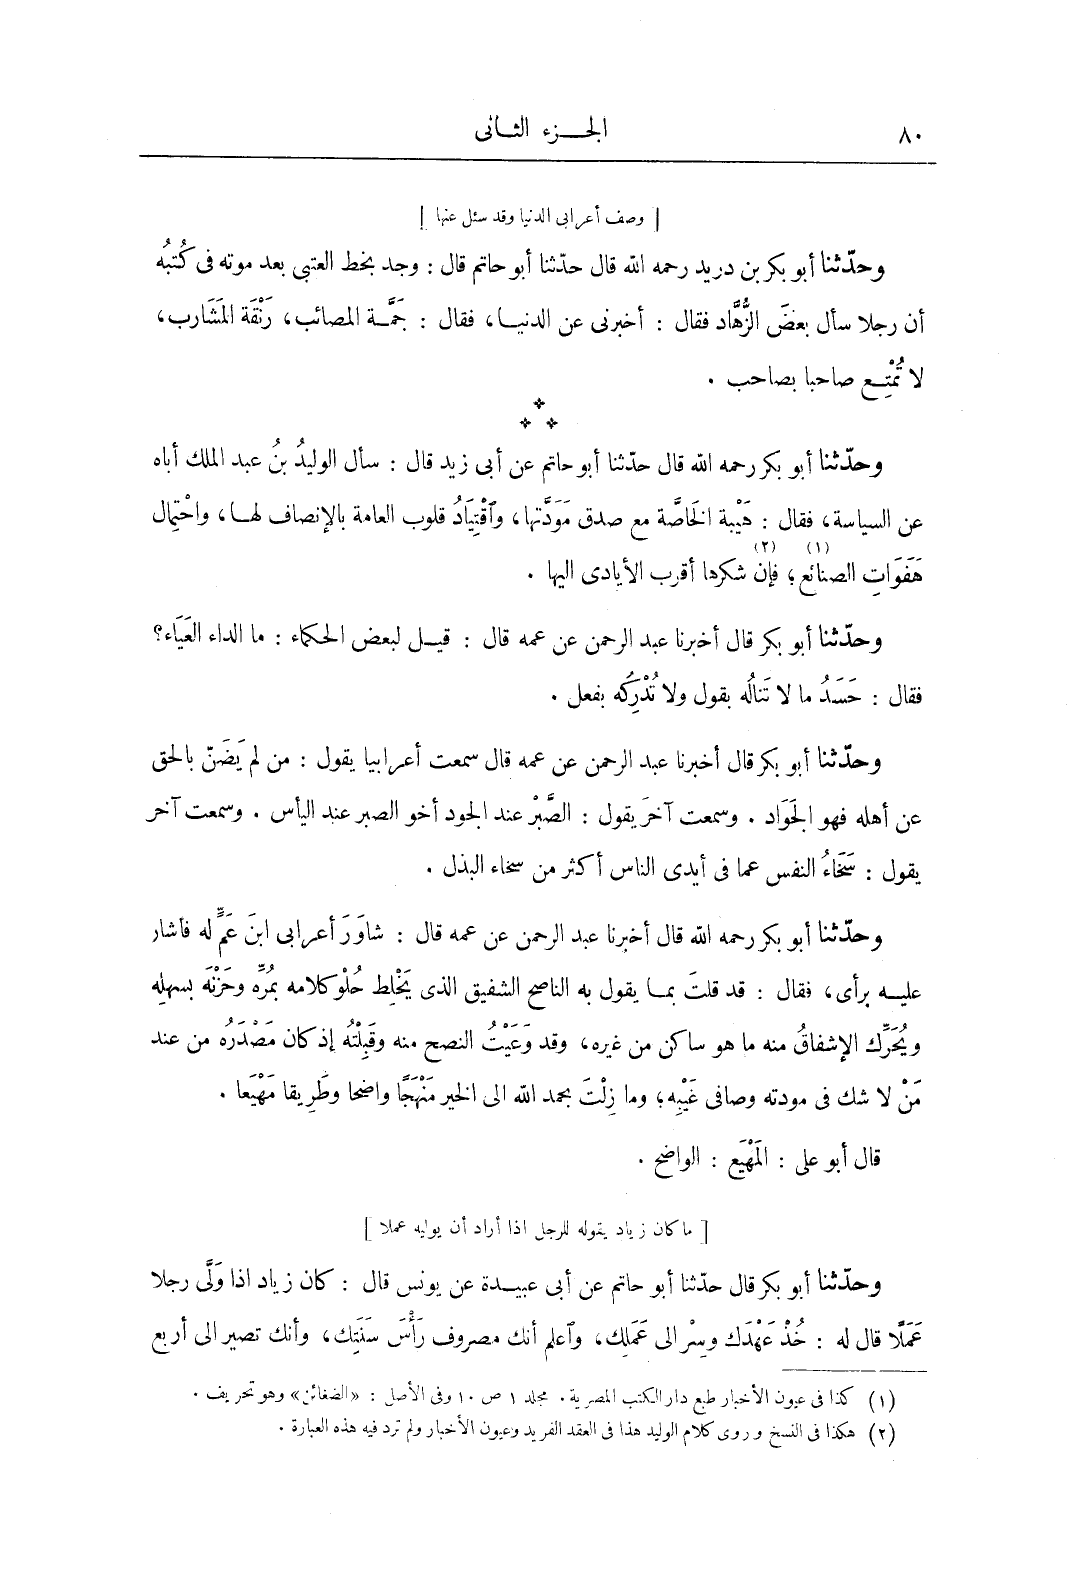 ٨٠
الجـــزء الثـانى
[ وصف أعرابى الدنيا وقد سئل عنها ]
وحدّثنا أبو بكر بن دريد رحمه الله قال حدّثنا أبو حاتم قال : وجد بخط العتبى بعد موته فى كُتبُه
أن رجلا سأل بعضَ الزُّهَّاد فقال : أخبرنى عن الدنيـا، فقال : جَمَّـة المصائب، رَنْقَة المَشَارب،
لا تُمْتِـع صاحبا بصاحب .
وحدّثنا أبو بكر رحمه الله قال حدّثنا أبو حاتم عن أبى زيد قال : سأل الوليدُ بنُ عبد الملك أباه
عن السياسة، فقال : هَيْبة الخاصَّة مع صدق مَوَدَّتها، وٱقْتِيَادُ قلوب العامة بالإنصاف لهـا، واحْتِمال
هَفَوَاتِ الصنائع(١)؛ فإن(٢) شكرها أقرب الأيادى اليها .
وحدّثنا أبو بكر قال أخبرنا عبد الرحمن عن عمه قال : قيـل لبعض الحكماء : ما الداء العَيَاء؟
فقال : حَسَدُ ما لا تَنالُه بقول ولا تُدْرِكُه بفعل .
وحدّثنا أبو بكر قال أخبرنا عبد الرحمن عن عمه قال سمعت أعرابيا يقول : من لم يَضَنّ بالحق
عن أهله فهو الجَوَاد . وسمعت آخرَ يقول : الصَّبْر عند الجود أخو الصبر عند اليأس . وسمعت آخر
يقول : سَخَاءُ النفس عما فى أيدى الناس أكثر من سخاء البذل .
وحدّثنا أبو بكر رحمه الله قال أخبرنا عبد الرحمن عن عمه قال : شاوَرَ أعرابى ابنَ عَمٍّ له فأشار
عليـه برأى، فقال : قد قلتَ بمـا يقول به الناصح الشفيق الذى يَخْلِط حُلْو كلامه بمُرِّه وحَزْنَه بسهلِه
ويُحَرِّك الإشفاقُ منه ما هو ساكن من غيره، وقد وَعَيْتُ النصح منه وقَبِلْتُه إذ كان مَصْدَرُه من عند
مَنْ لا شك فى مودته وصافى غَيْبِه؛ وما زِلْتَ بحمد الله الى الخير مَنْهَجًا واضحا وطَرِيقا مَهْيَعا .
قال أبو على : المَهْيَع : الواضح .
[ ما كان زياد يقوله للرجل اذا أراد أن يوليه عملا ]
وحدّثنا أبو بكر قال حدّثنا أبو حاتم عن أبى عبيـدة عن يونس قال : كان زياد اذا وَلَّى رجلا
عَمَلًا قال له : خُذْ عَهْدَك وسِرْ الى عَمَلِك، وٱعلم أنك مصروف رَأْسَ سَنَتِك، وأنك تصير الى أربع
(١) كذا فى عيون الأخبار طبع دار الكتب المصرية. مجلد ١ ص ١٠ وفى الأصل : «الضغائن» وهو تحريف .
(٢) هكذا فى النسخ وروى كلام الوليد هذا فى العقد الفريد وعيون الأخبار ولم ترد فيه هذه العبارة .